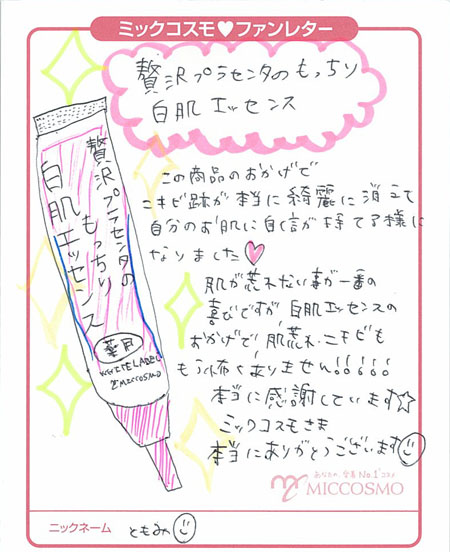 ミックコスモ♥ファンレター
贅沢プラセンタのもっちり
白肌エッセンス
この商品のおかげで
ニキビ跡が本当に綺麗に消えて
自分のお肌に自信が持てる様に
なりました♡
肌が荒れない事が一番の
喜びですが白肌エッセンスの
おかげで肌荒れ・ニキビも
もう怖くありません!!!!!
本当に感謝しています☆
ミックコスモさま
本当にありがとうございます
贅沢プラセンタの
もっちり
白肌エッセンス
薬用
WHITE LABEL
MICCOSMO
あなたの、定番No.1コスメ
MICCOSMO
ニックネーム ともみ